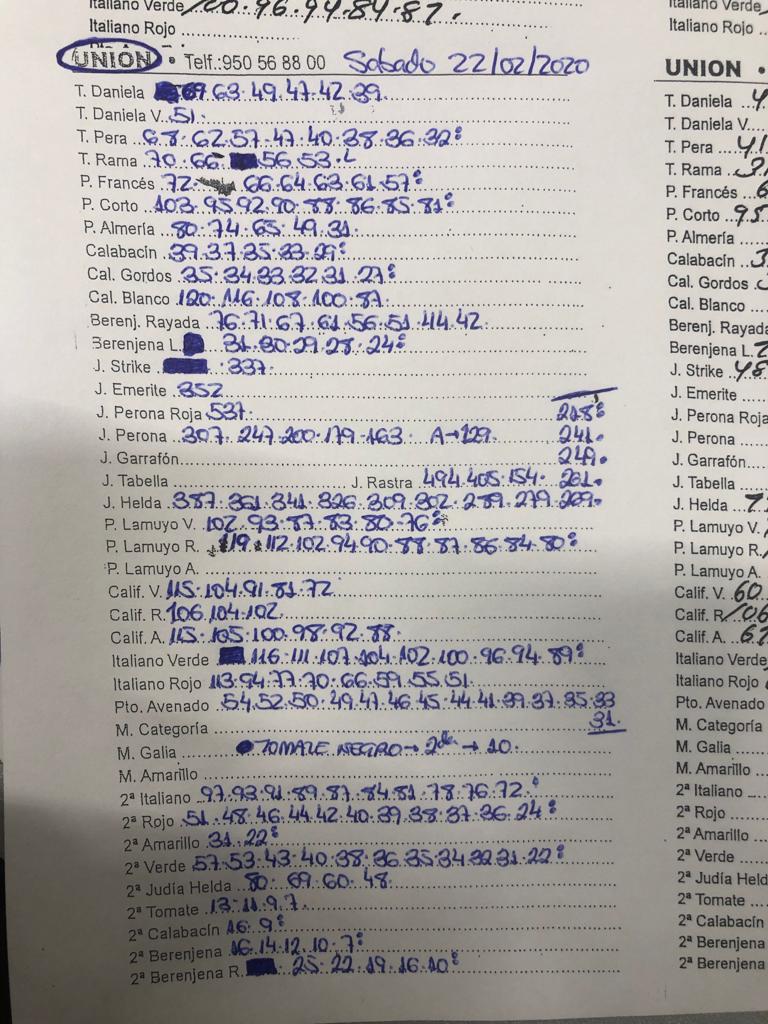 Italiano Verde 120.96.94.84.87.
Italiano Rojo
UNION • Telf.:950 56 88 00 Sabado 22/02/2020
T. Daniela 69 63.49.47.42.39
T. Daniela V. 51.
T. Pera 68.62.57.47.40.38.36.32
T. Rama 70.66 56.53.
P. Francés 72. 66.64.63.61.57
P. Corto 103.95.92.90.88.86.85.81
P. Almería 80.74.65.49.31.
Calabacín 39.37.35.33.29
Cal. Gordos 35.34.33.32.31.27
Cal. Blanco 120.116.108.100.87
Berenj. Rayada 76.71.67.61.56.51.44.42.
Berenjena L. 31.30.29.28.24
J. Strike 337.
J. Emerite 352
J. Perona Roja 537. 218
J. Perona 307.247.200.179.163 A→129. 241.
J. Garrafón 249.
J. Tabella J. Rastra 494.405.154. 261.
J. Helda 387.361.341.326.309.302.289.279.269.
P. Lamuyo V. 102.93.87.83.80.76
P. Lamuyo R. 119.112.102.94.90.88.87.86.84.80
P. Lamuyo A.
Calif. V. 115.104.91.81.72
Calif. R. 106.104.102
Calif. A. 115.105.100.98.92.88.
Italiano Verde 116.111.107.104.102.100.96.94.89
Italiano Rojo 113.94.77.70.66.59.55.51
Pto. Avenado 54.52.50.49.47.46.45.44.41.39.37.35.33
31.
M. Categoría
M. Galia TOMATE NEGRO → 2da → 10.
M. Amarillo
2ª Italiano 97.93.91.89.87.84.81.78.76.72.
2ª Rojo 51.48.46.44.42.40.39.38.37.36.24
2ª Amarillo 31.22
2ª Verde 57.53.43.40.38.36.35.34.32.31.22
2ª Judía Helda 80.69.60.48.
2ª Tomate 13.11.9.7.
2ª Calabacín 16.9
2ª Berenjena 16.14.12.10.7
2ª Berenjena R. 25.22.19.16.10
Italiano Verde
Italiano Rojo
UNION •
T. Daniela
T. Daniela V.
T. Pera 41
T. Rama
P. Francés
P. Corto 95
P. Almería
Calabacín
Cal. Gordos
Cal. Blanco
Berenj. Rayada
Berenjena L.
J. Strike 48
J. Emerite
J. Perona Roja
J. Perona
J. Garrafón
J. Tabella
J. Helda
P. Lamuyo V.
P. Lamuyo R.
P. Lamuyo A.
Calif. V. 60
Calif. R. 106
Calif. A.
Italiano Verde
Italiano Rojo
Pto. Avenado
M. Categoría
M. Galia
M. Amarillo
2ª Italiano
2ª Rojo
2ª Amarillo
2ª Verde
2ª Judía Held
2ª Tomate
2ª Calabacín
2ª Berenjena
2ª Berenjena